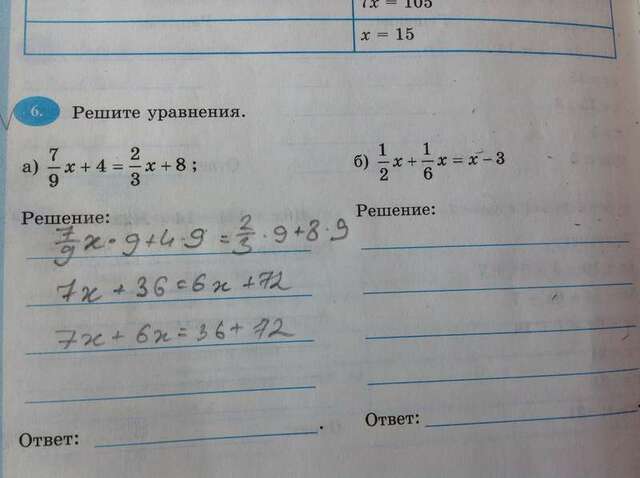 7x = 105
x = 15
6. Решите уравнения.
а) 7/9 x + 4 = 2/3 x + 8 ;
Решение:
7/9 x · 9 + 4 · 9 = 2/3 · 9 + 8 · 9
7x + 36 = 6x + 72
7x + 6x = 36 + 72
Ответ: .
б) 1/2 x + 1/6 x = x – 3
Решение:
Ответ: